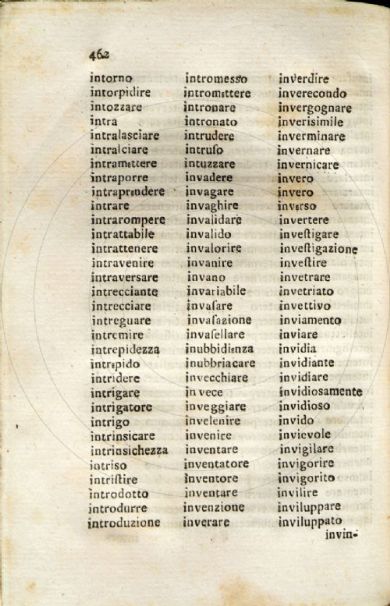 462
intorno
intorpidire
intozzare
intra
intralasciare
intralciare
intramettere
intraporre
intraprendere
intrare
intrarompere
intrattabile
intrattenere
intravenire
intraversare
intrecciante
intrecciare
intreguare
intremire
intrepidezza
intrepido
intridere
intrigare
intrigatore
intrigo
intrinsicare
intrinsichezza
intriso
intriſtire
introdotto
introdurre
introduzione
intromesso
intromettere
intronare
intronato
intrudere
intruſo
intuzzare
invadere
invagare
invaghire
invalidare
invalido
invalorire
invanire
invano
invariabile
invaſare
invaſazione
invaſellare
inubbidienza
inubbriacare
invecchiare
in vece
inveggiare
invelenire
invenire
inventare
inventatore
inventore
inventare
invenzione
inverare
inverdire
inverecondo
invergognare
inveriſimile
inverminare
invernare
invernicare
invero
invero
inverso
invertere
inveſtigare
inveſtigazione
inveſtire
invetrare
invetriato
invettivo
inviamento
inviare
invidia
invidiante
invidiare
invidiosamente
invidioso
invido
invievole
invigilare
invigorire
invigorito
invilire
inviluppare
inviluppato
invin-